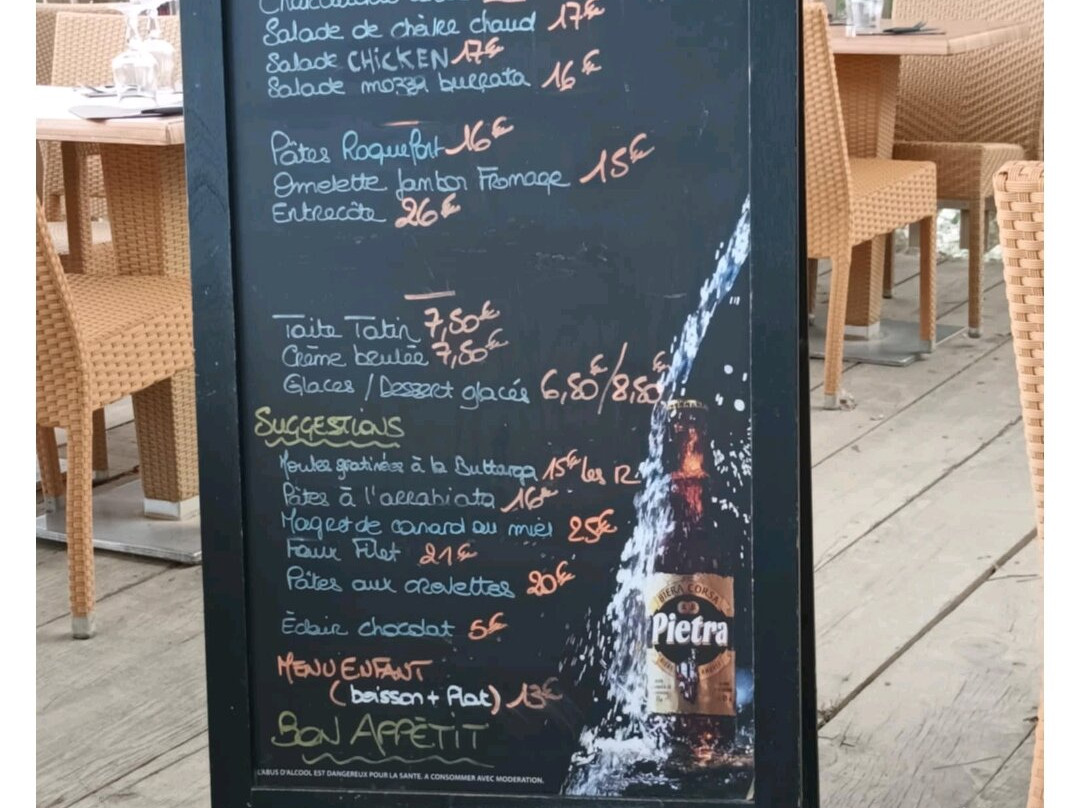 Salade de chèvre chaud 17€
Salade CHICKEN 17€
Salade mozza burrata 16€
Pâtes Roquefort 16€
Omelette Jambon Fromage 15€
Entrecôte 26€
Tarte Tatin 7,50€
Crème brulée 7,50€
Glaces / Dessert glacés 6,50€/8,50€
SUGGESTIONS
Moules gratinées à la Buttarga 15€ les 12
Pâtes à l'arrabiata 16€
Magret de canard au miel 25€
Faux Filet 21€
Pâtes aux crevettes 20€
Éclair chocolat 5€
MENU ENFANT
(boisson + Plat) 13€
BON APPÉTIT
L'ABUS D'ALCOOL EST DANGEREUX POUR LA SANTE. A CONSOMMER AVEC MODERATION.
BIERA CORSA
Pietra